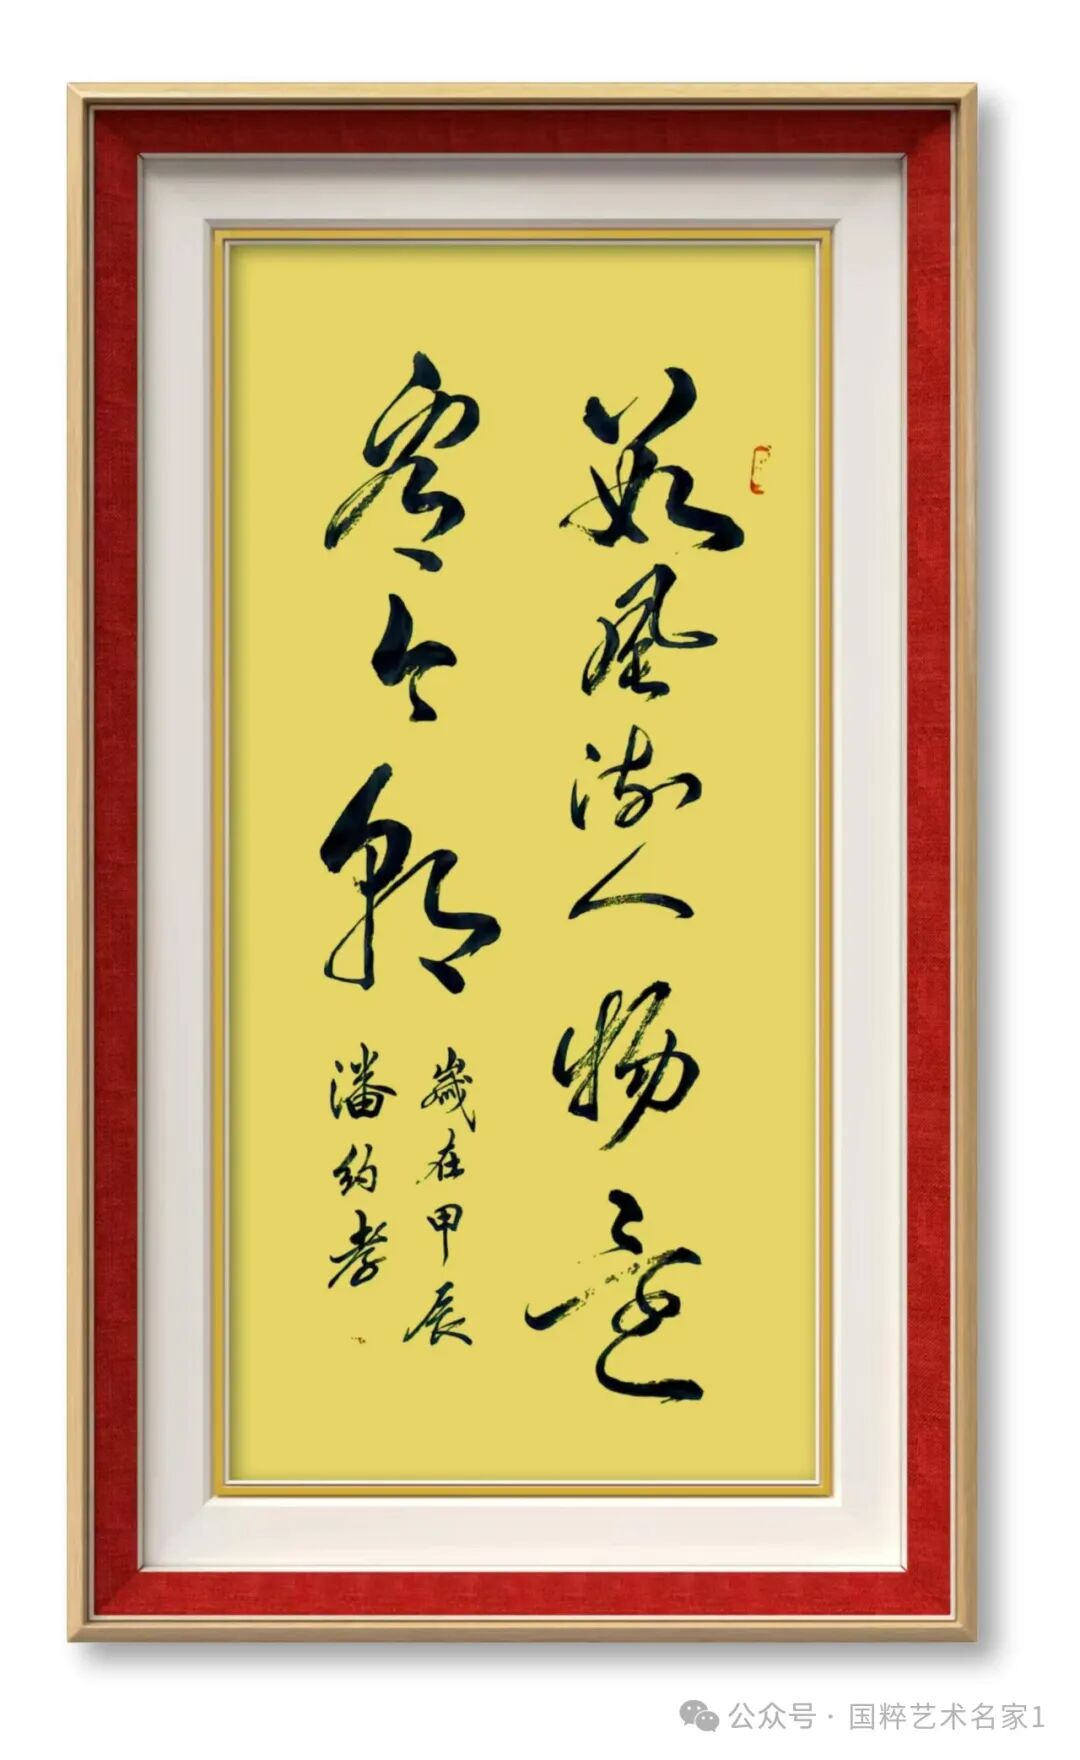 數風流人物還
看今朝
歲在甲辰
潘約孝
公众号 · 国粹艺术名家1